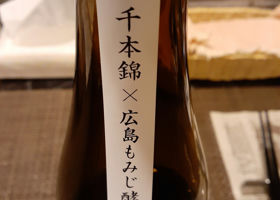 千本錦×広島もみじ酵